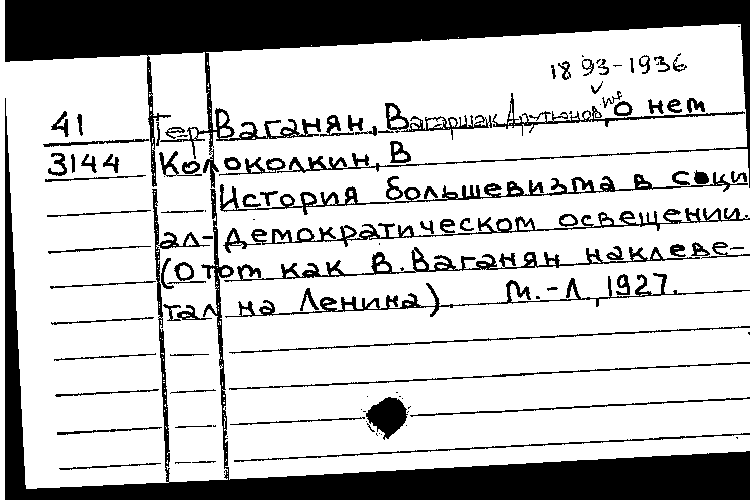 1893-1936
41 Тер-Ваганян, Вагаршак Арутюнович, о нем
3144 Колоколкин, В
История большевизма в соци
ал-демократическом освещении.
(О том как В. Ваганян наклеве-
тал на Ленина). М.-Л., 1927.